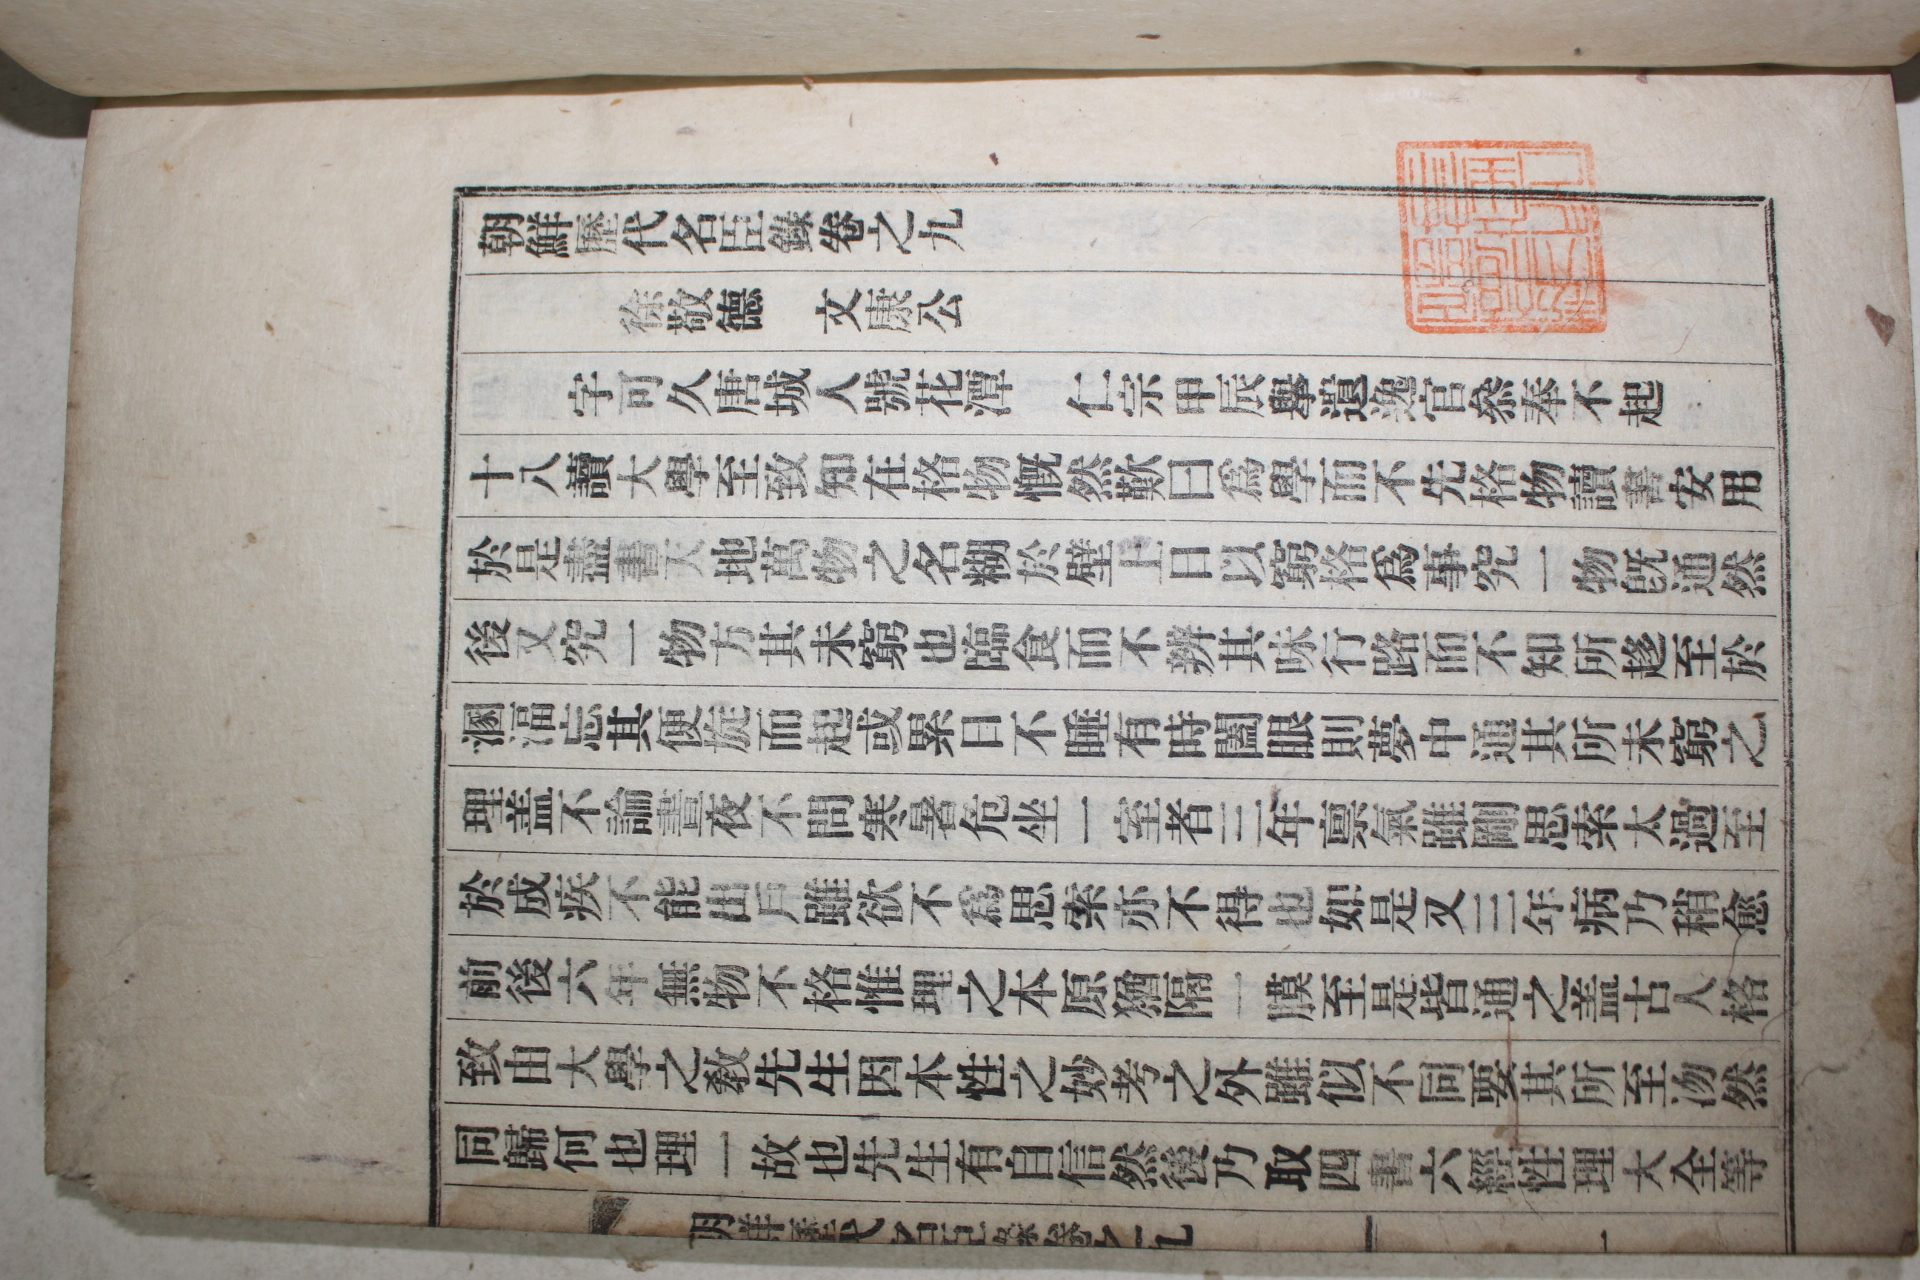 朝鮮歷代名臣錄卷之九
徐敬德 文康公
字可久唐城人號花潭 仁宗甲辰擧遺逸官參奉不起
十八讀大學至致知在格物慨然歎曰爲學而不先格物讀書安用
於是盡書天地萬物之名糊於壁上日以窮格爲事究一物旣通然
後又究一物方其未窮也臨食而不辨其味行路而不知所趍至於
溷湢忘其便旋而起或累日不睡有時闔眼則夢中通其所未窮之
理盖不論晝夜不問寒暑危坐一室者三年禀氣雖剛思索太過至
於成疾不能出戶雖欲不爲思索亦不得也如是又三年病乃稍愈
前後六年無物不格惟理之本原猶隔一膜至是皆通之盖古人格
致由大學之敎先生因本性之妙考之外雖似不同要其所至沕然
同歸何也理一故也先生有自信然後乃取四書六經性理大全等
朝鮮歷代名臣錄卷之九 一